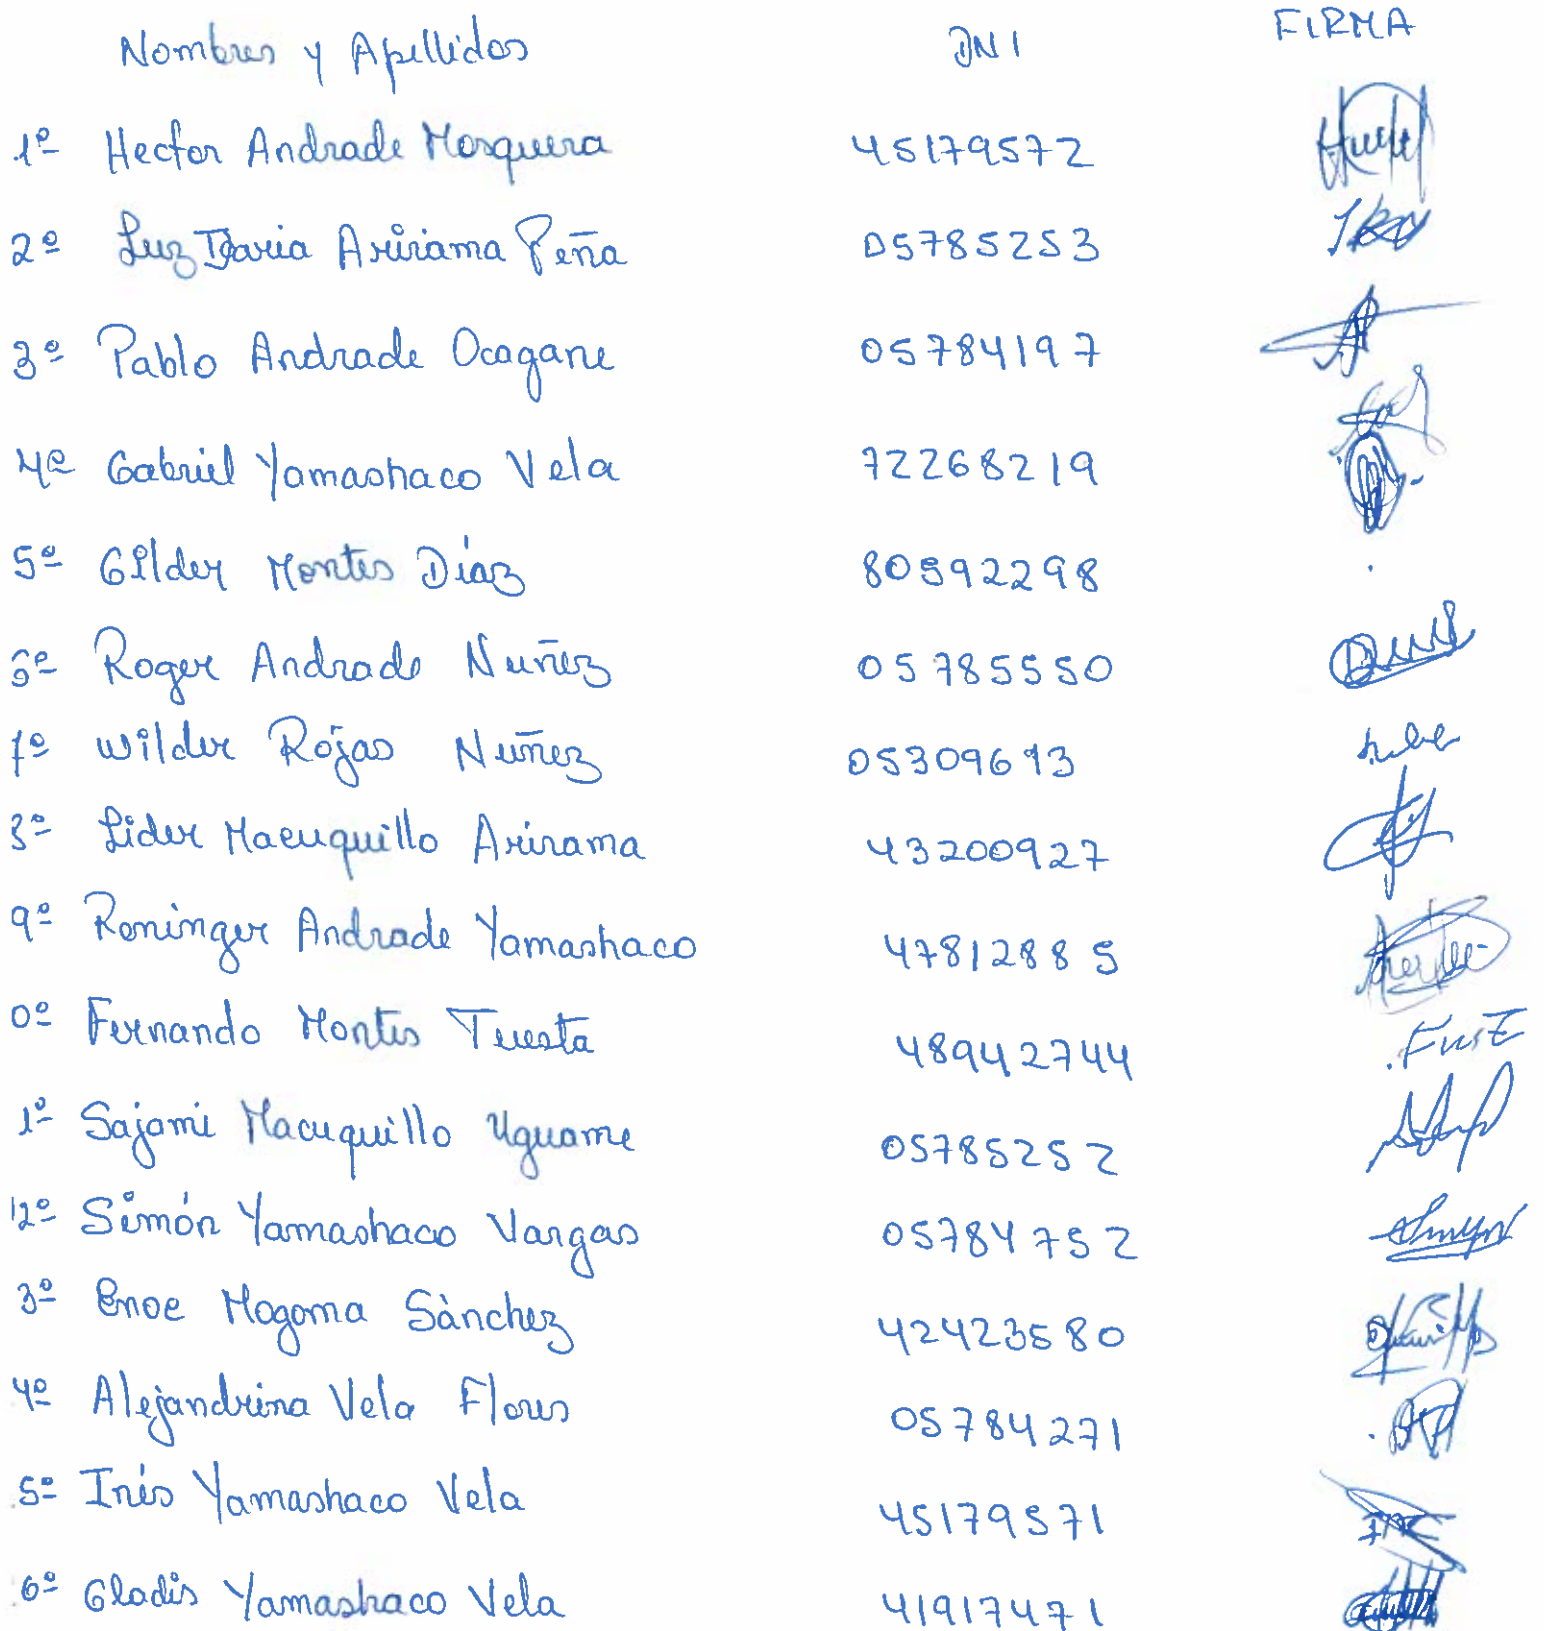 Nombres y Apellidos DNI FIRMA
1º Hector Andrade Mosquera 45179572
2º Luz Idaria Arirama Peña 05785253
3º Pablo Andrade Ocagane 05784197
4º Gabriel Yamashaco Vela 72268219
5º Gilder Montes Díaz 80592298
6º Roger Andrade Nuñez 05785550
7º Wilder Rojas Nuñez 05309613
8º Lider Macuquillo Arirama 43200927
9º Roninger Andrade Yamashaco 47812885
0º Fernando Montes Tuesta 48942744
1º Sajami Macuquillo Uguame 05785252
12º Simón Yamashaco Vargas 05784752
3º Enoe Mogoma Sànchez 42423580
4º Alejandrina Vela Flores 05784271
5º Inés Yamashaco Vela 45179571
6º Gladis Yamashaco Vela 41917471